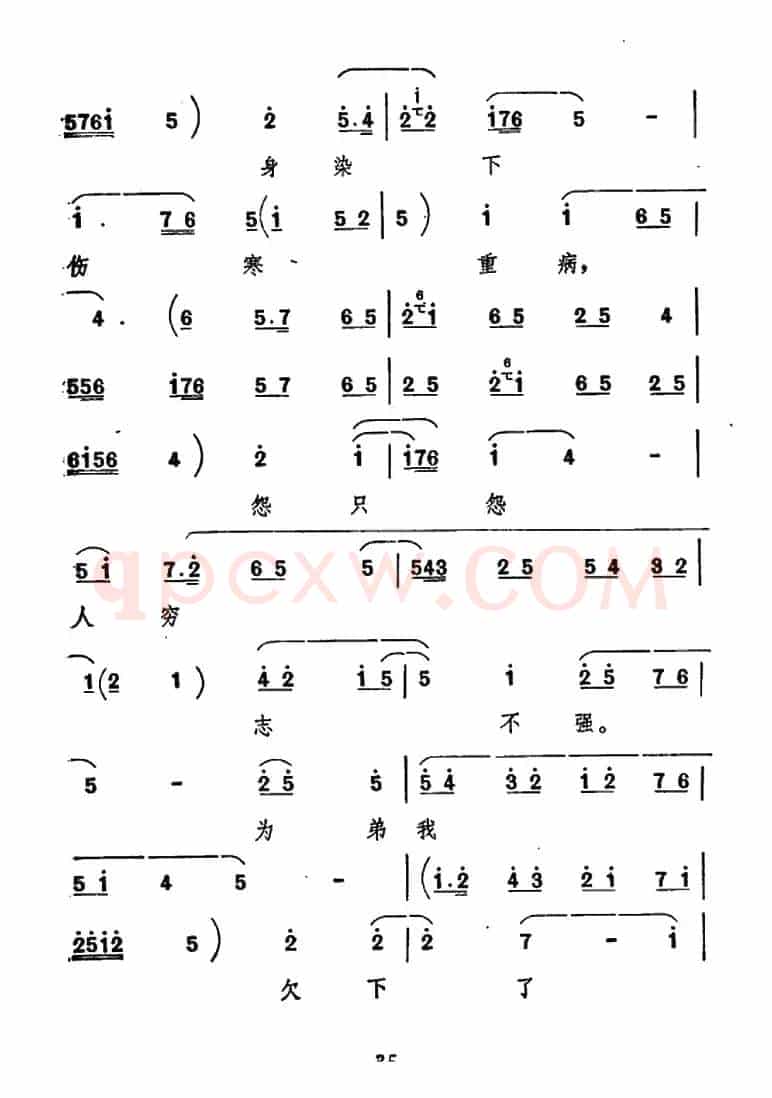 5761 5 ) 2 5.4 | 1 2 2 176 5 - |
身 染 下
1. 7 6 5 ( 1 5 2 | 5 ) 1 1 6 5 |
伤 寒 重 病，
4. ( 6 5.7 6 5 | 6 2 1 6 5 2 5 4 |
556 176 5 7 6 5 | 2 5 6 2 1 6 5 2 5 |
6156 4 ) 2 1 | 176 1 4 - |
怨 只 怨
5 1 7.2 6 5 5 | 543 2 5 5 4 3 2 |
人 穷
qpcxw.COM
1 ( 2 1 ) 4 2 1 5 | 5 1 2 5 7 6 |
志 不 强。
5 - 2 5 5 | 5 4 3 2 1 2 7 6 |
为 弟 我
5 1 4 5 - | ( 1.2 4 3 2 1 7 1 |
2512 5 ) 2 2 | 2 7 - 1 |
欠 下 了